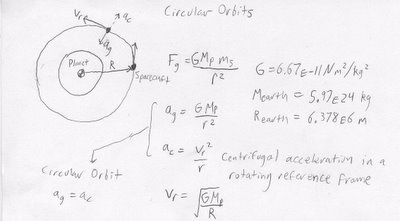 Circular Orbits
Vr
ac
ag
Planet
R
Spacecraft
Fg = GMp ms / r²
G = 6.67E-11 Nm²/kg²
Mearth = 5.97E24 kg
Rearth = 6.378E6 m
ag = GMp / r²
ac = Vr² / r
Centrifugal acceleration in a
rotating reference frame
Circular Orbit
ag = ac
Vr = √GMp / R